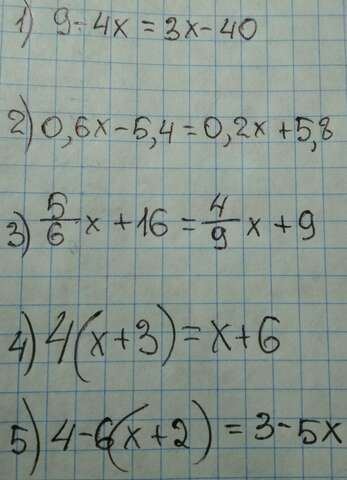 1) 9 - 4x = 3x - 40
2) 0,6x - 5,4 = 0,2x + 5,8
3) 5/6 x + 16 = 4/9 x + 9
4) 4(x + 3) = x + 6
5) 4 - 6(x + 2) = 3 - 5x